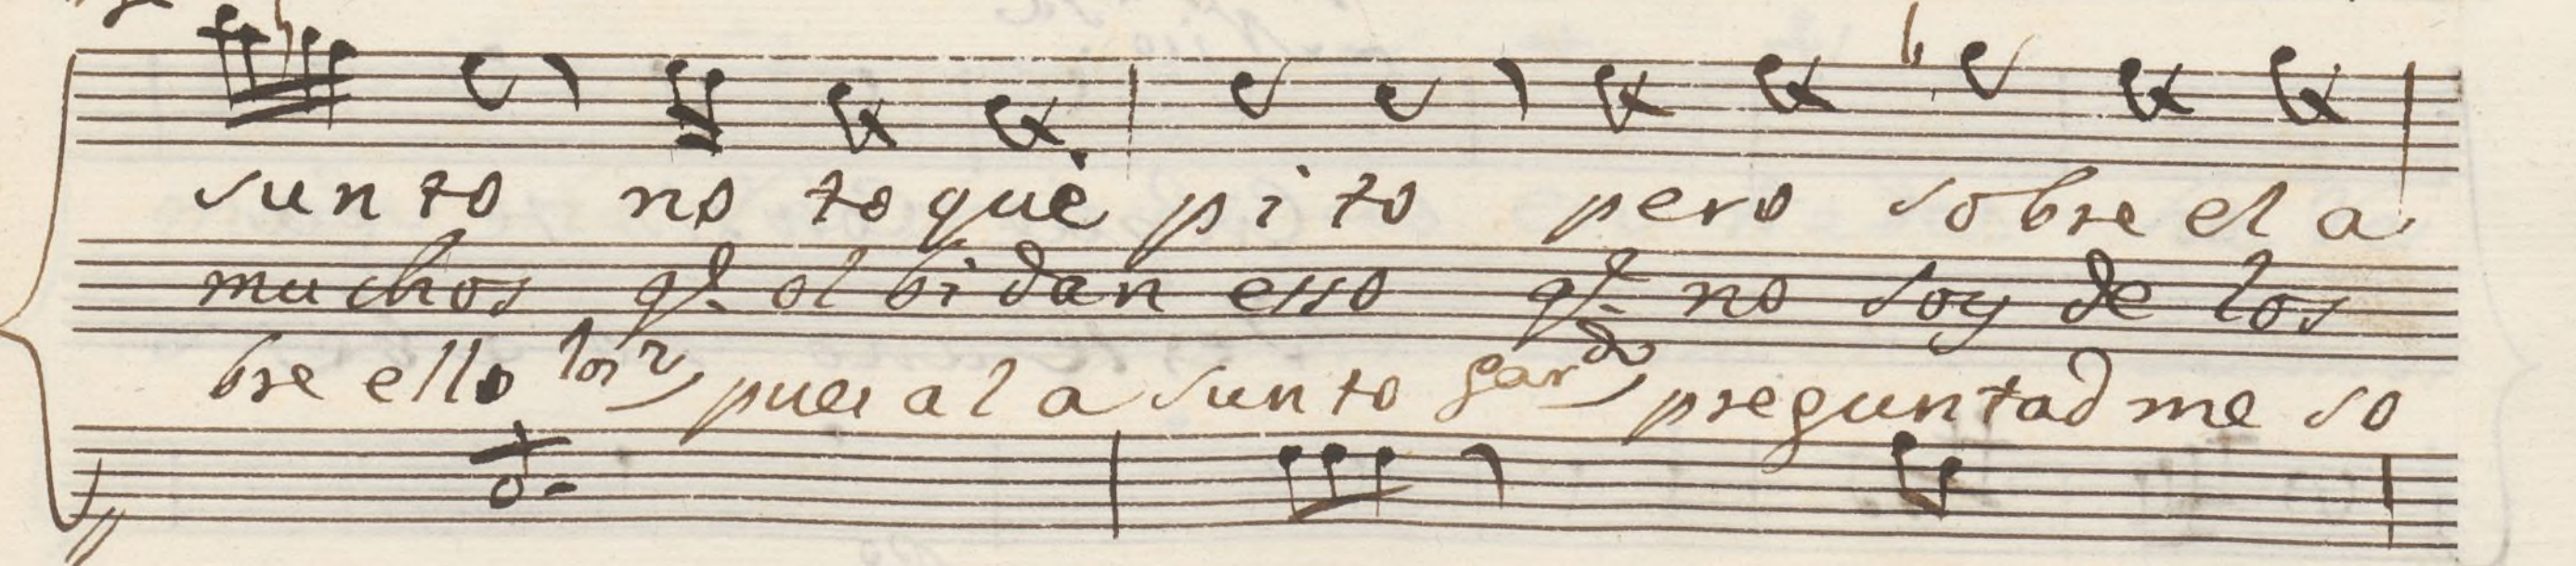 sun to no to què pi to pero sobre el a
muchos q.e olbidan esso q.e no soy de los
bre ello pues al a sunto gar.do preguntad me so